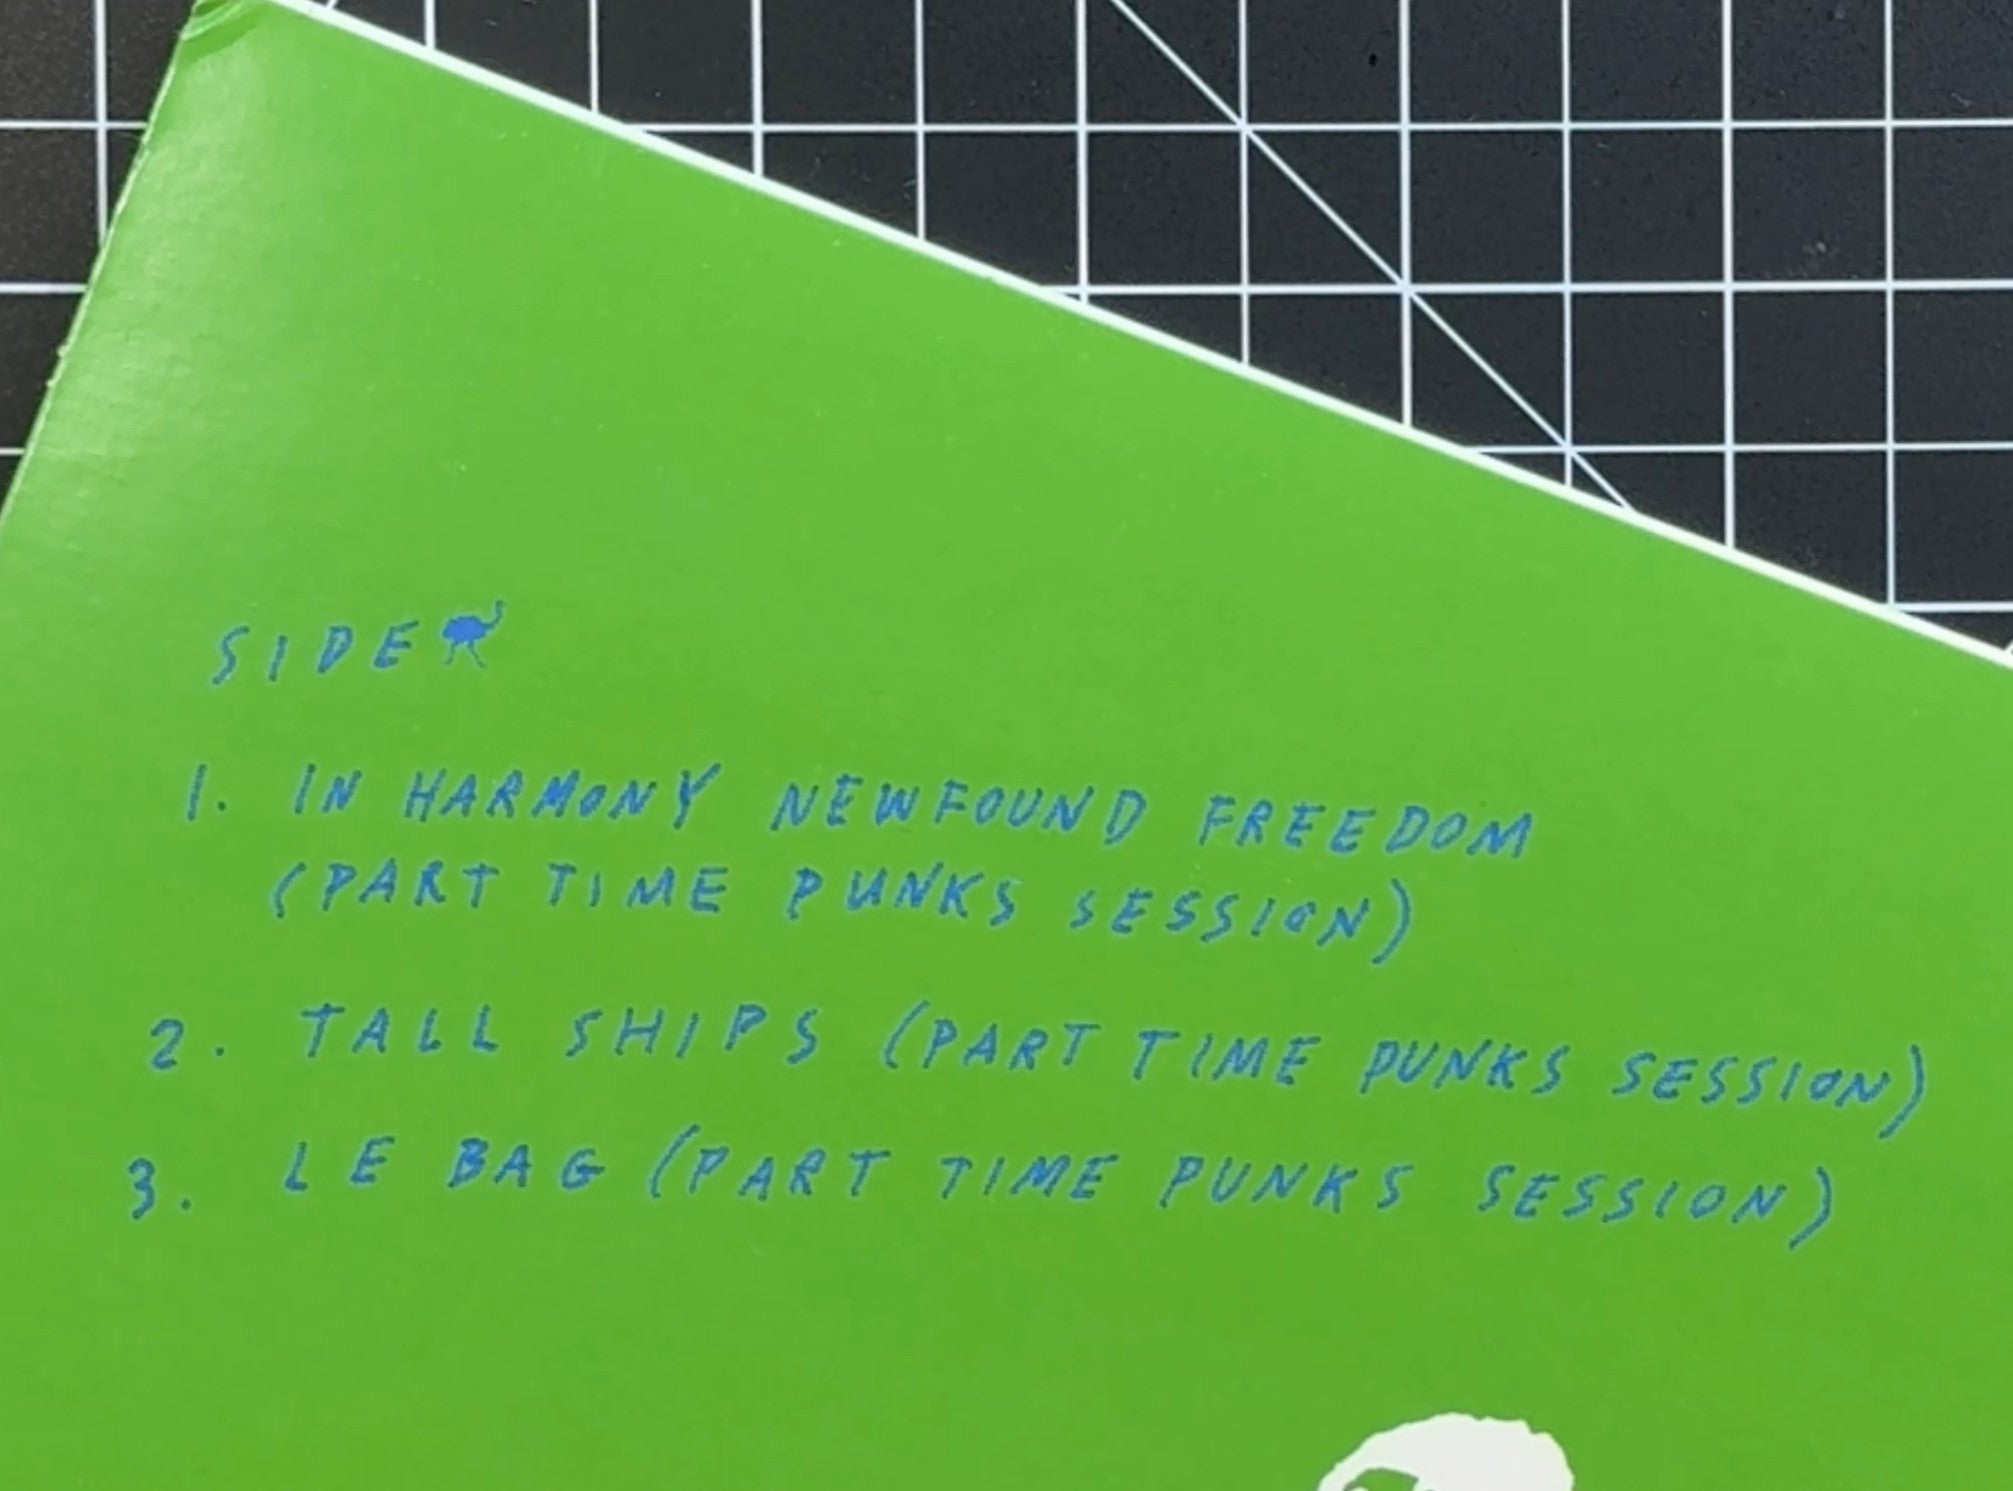 SIDE
1. IN HARMONY NEWFOUND FREEDOM
(PART TIME PUNKS SESSION)
2. TALL SHIPS (PART TIME PUNKS SESSION)
3. LE BAG (PART TIME PUNKS SESSION)